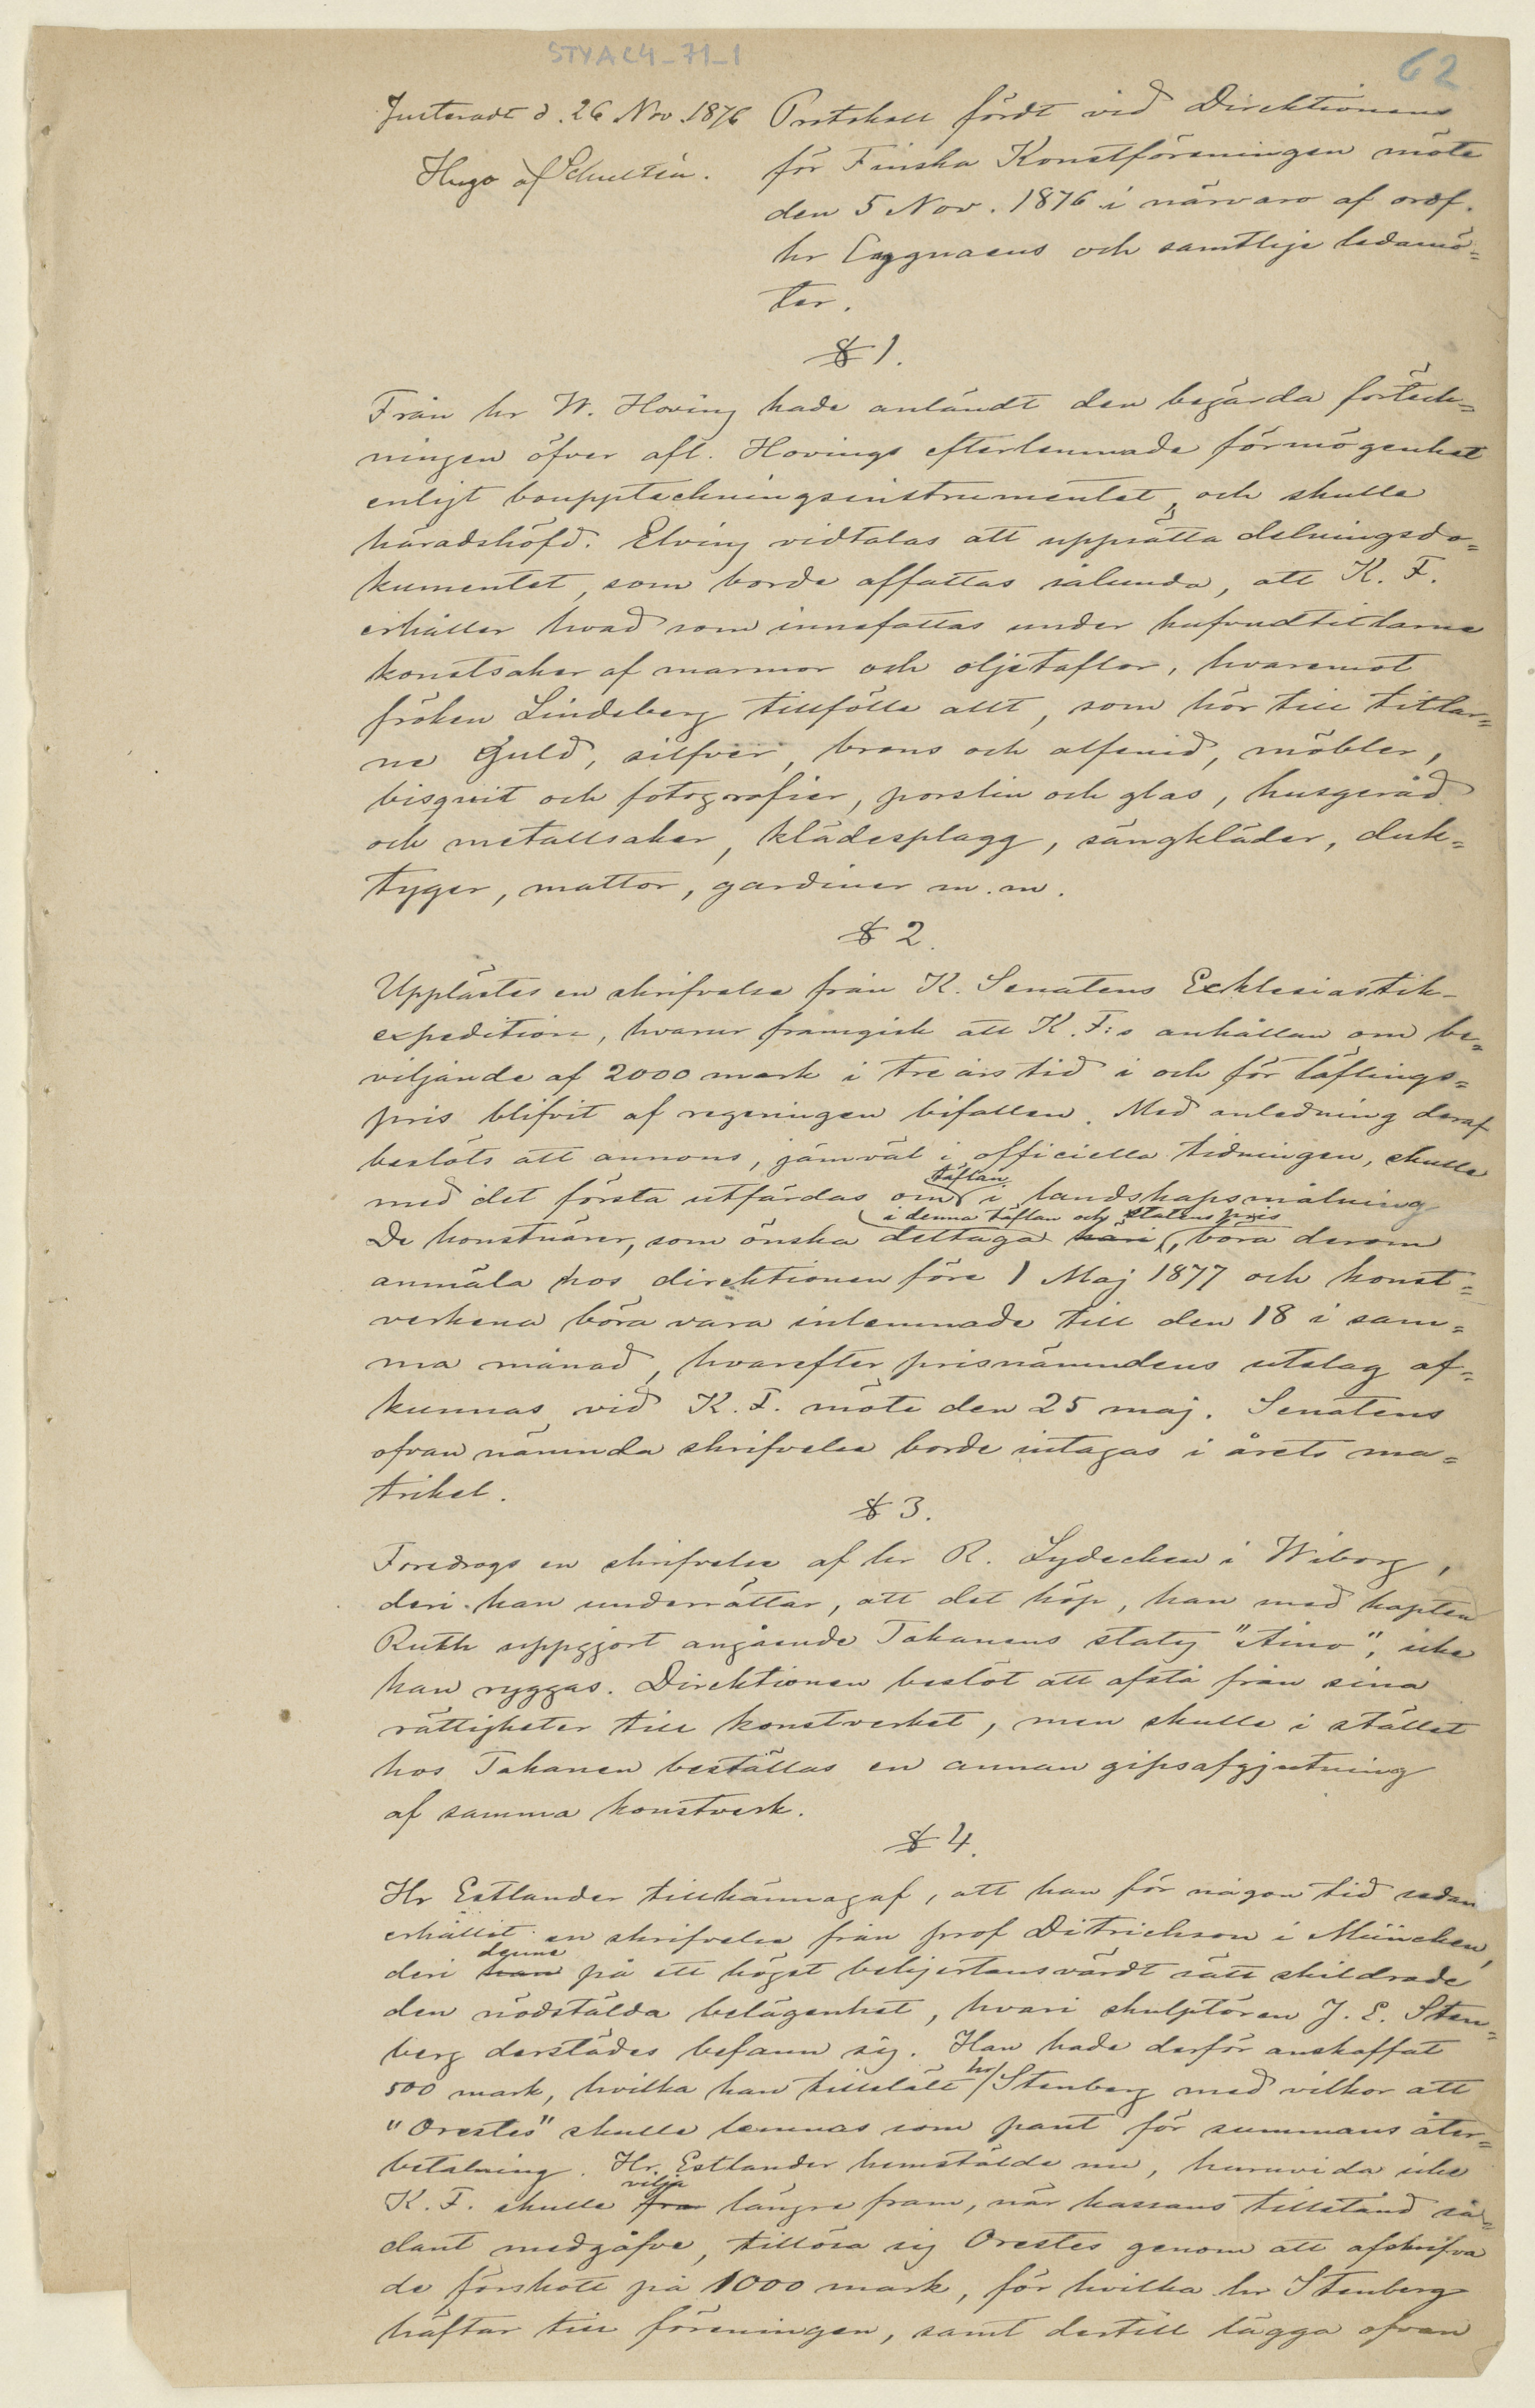 STYAC4_71_1
62
Justeradt d. 26 Nov. 1876
Hugo af Schultén.
Protokoll fördt vid Direktionens
för Finska Konstföreningen möte
den 5 Nov. 1876 i närvaro af ordf.
hr Cygnaeus och samtlige ledamö=
ter.
§ 1.
Från hr W. Hoving hade anländt den begärda förteck=
ningen öfver afl. Hovings efterlemnade förmögenhet
enligt bouppteckningsinstrumentet, och skulle
häradshöfd. Elving vidtalas att uppsätta delningsdo=
kumentet, som borde affattas sålunda, att K. F.
erhåller hvad som innefattas under hufvudtitlarne
konstsaker af marmor och oljetaflor, hvaremot
fröken Lindeberg tillfölle allt, som hör till titlar=
ne Guld, silfver, brons och alfenid, möbler,
bisqvit och fotografier, porslin och glas, husgeråd
och metallsaker, klädesplagg, sängkläder, duk=
tyger, mattor, gardiner m. m.
§ 2.
Upplästes en skrifvelse från K. Senatens Ecklesiastik-
expedition, hvarur framgick att K. F:s anhållan om be=
viljande af 2000 mark i tre års tid i och för täflings=
pris blifvit af regeringen bifallen. Med anledning deraf
beslöts att annons, jämväl i officiella tidningen, skulle
med det första utfärdas om täflan i landskapsmålning
De konstnärer, som önska deltaga häri i denna täflan och statens pris, böra derom
anmäla hos direktionen före 1 Maj 1877 och konst=
verkena böra vara inlemnade till den 18 i sam=
ma månad, hvarefter prisnämndens utslag af=
kunnas vid K. F. möte den 25 maj. Senatens
ofvan nämnda skrifvelse borde intagas i årets ma=
trikel.
§ 3.
Foredrogs en skrifvelse af hr R. Lydecken i Wiborg,
deri han underrättar, att det köp, han med kapten
Ruth uppgjort angående Takanens staty "Aino", icke
kan ryggas. Direktionen beslöt att afstå från sina
rättigheter till konstverket, men skulle i stället
hos Takanen beställas en annan gipsafgjutning
af samma konstverk.
§ 4.
Hr Estlander tillkännagaf, att han för någon tid sedan
erhållit en skrifvelse från prof Ditrichson i München,
deri han denne på ett högst behjertansvärdt sätt skildrade
den nödstälda belägenhet, hvari skulptören J. E. Sten=
berg derstädes befann sig. Han hade derför anskaffat
500 mark, hvilka han tillstält hr Stenberg med vilkor att
"Orestes" skulle lemnas som pant för summans åter=
betalning. Hr. Estlander hemstälde nu, huruvida icke
K. F. skulle vilja längre fram, när kassans tillstånd så=
dant medgåfve, tillösa sig Orestes genom att afskrifva
de förskott på 1000 mark, för hvilka hr Stenberg
häftar till föreningen, samt dertill lägga ofvan